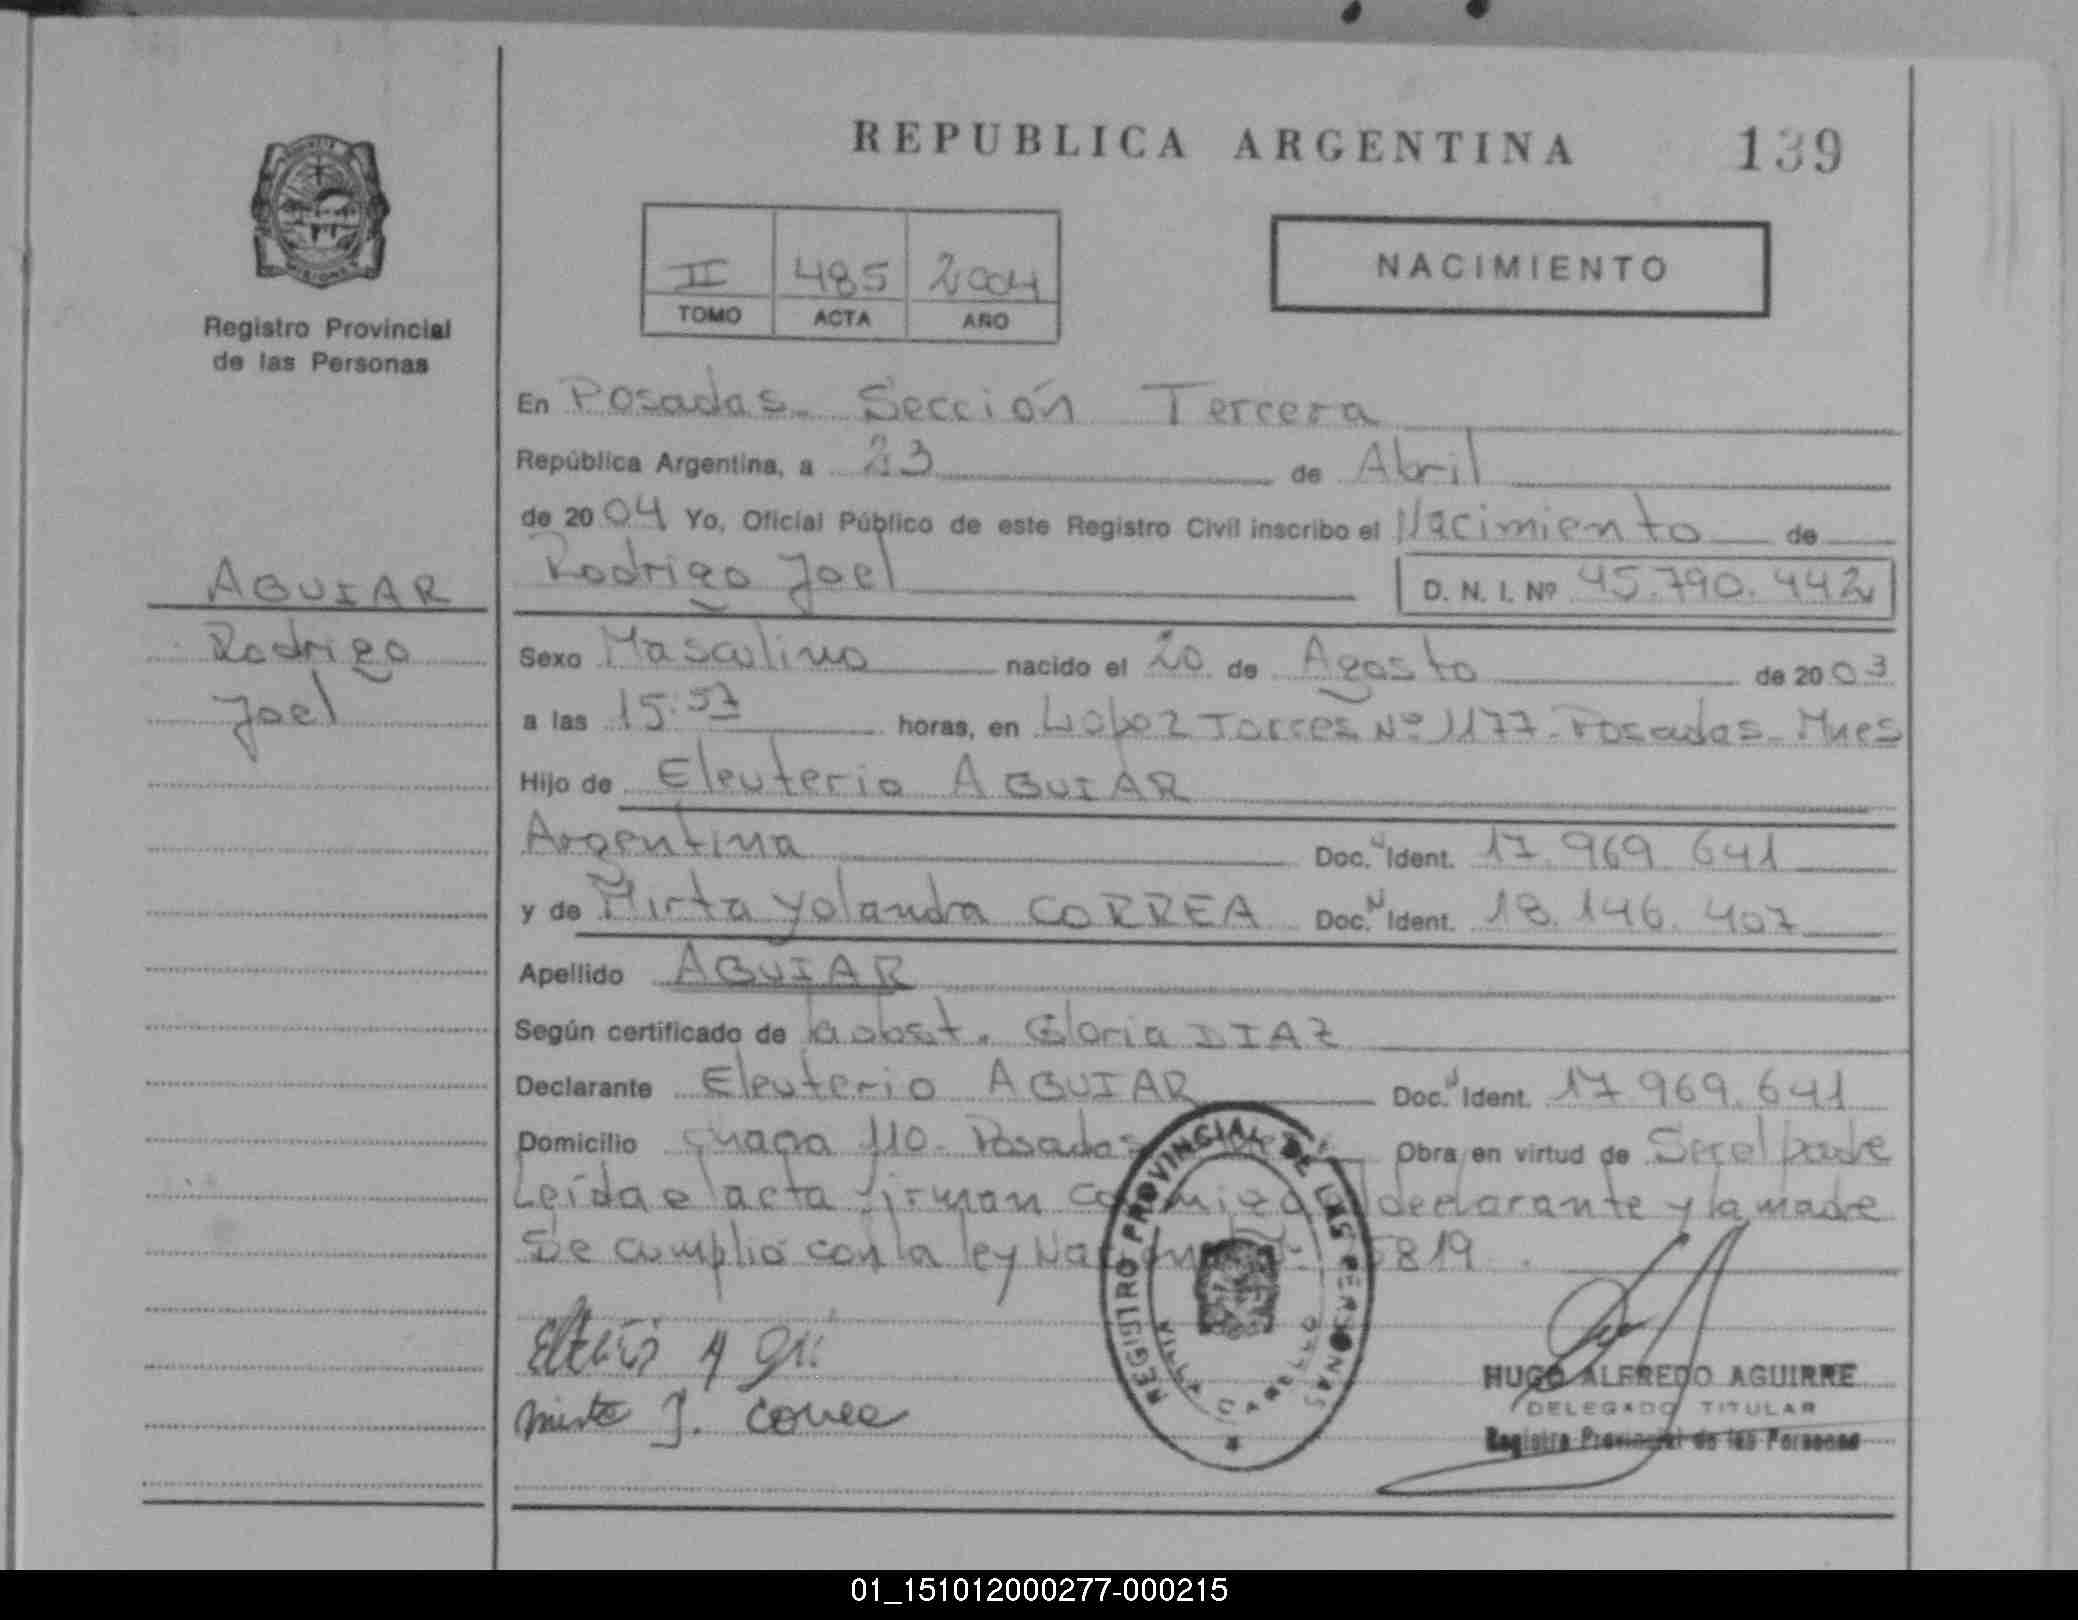 REPUBLICA ARGENTINA 139
Registro Provincial
de las Personas
II 485 2004
TOMO ACTA AÑO
NACIMIENTO
En Posadas. Sección Tercera
República Argentina, a 23 de Abril
de 2004 Yo, Oficial Público de este Registro Civil inscribo el Nacimiento de
Rodrigo Joel D. N. I. Nº 45.790.442
AGUIAR
Rodrigo
Joel
Sexo Masculino nacido el 20 de Agosto de 2003
a las 15:57 horas, en Lopez Torres Nº 1177. Posadas. Mnes
Hijo de Eleuterio AGUIAR
Argentina Doc. Ident. 17.969.641
y de Mirta Yolanda CORREA Doc. Ident. 18.146.407
Apellido AGUIAR
Según certificado de Gloria DIAZ
Declarante Eleuterio AGUIAR Doc. Ident. 17.969.641
Domicilio 110. Posadas Obra en virtud de Ser el padre
Leída el acta firman declarante y la madre
Se cumplió con la ley 819.
Mirta J. Correa
REGISTRO PROVINCIAL DE LAS PERSONAS
HUGO ALFREDO AGUIRRE
DELEGADO TITULAR
Registro Provincial de las Personas
01_151012000277-000215